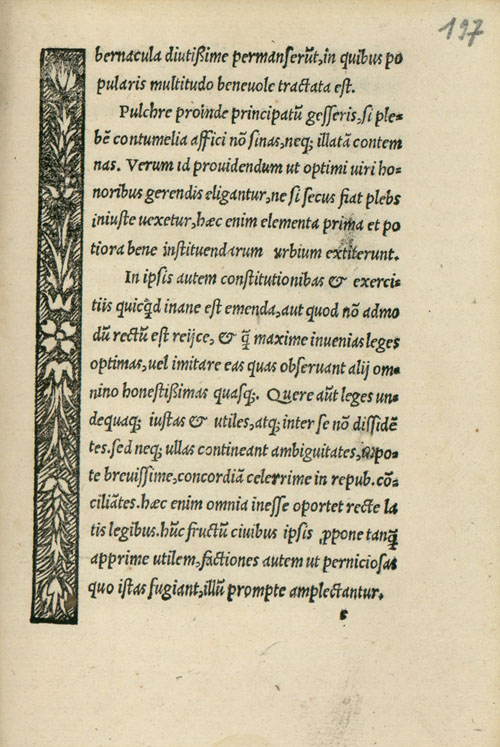 197
bernacula diutißime permanserũt, in quibus po
pularis multitudo beneuole tractata est.
Pulchre proinde principatũ gesseris, si ple-
bẽ contumelia affici nõ sinas, neq; illatã contem
nas. Verum id prouidendum ut optimi uiri ho-
noribus gerendis eligantur, ne si secus fiat plebs
iniuste uexetur, hæc enim elementa prima et po
tiora bene instituendarum urbium extiterunt.
In ipsis autem constitutionibas & exerci-
tiis quicq̃d inane est emenda, aut quod nõ admo
dũ rectũ est reijce, & q̃ maxime inuenias leges
optimas, uel imitare eas quas obseruant alij om-
nino honestißimas quasq;. Quere aũt leges un-
dequaq; iustas & utiles, atq; inter se nõ dissidẽ
tes. sed neq; ullas contineant ambiguitates, utpo-
te breuissime, concordiã celerrime in repub. cõ-
ciliãtes. hæc enim omnia inesse oportet recte la
tis legibus. hũc fructũ ciuibus ipsis ꝓpone tanq̃
apprime utilem, factiones autem ut perniciosas
quo istas fugiant, illũ prompte amplectantur.